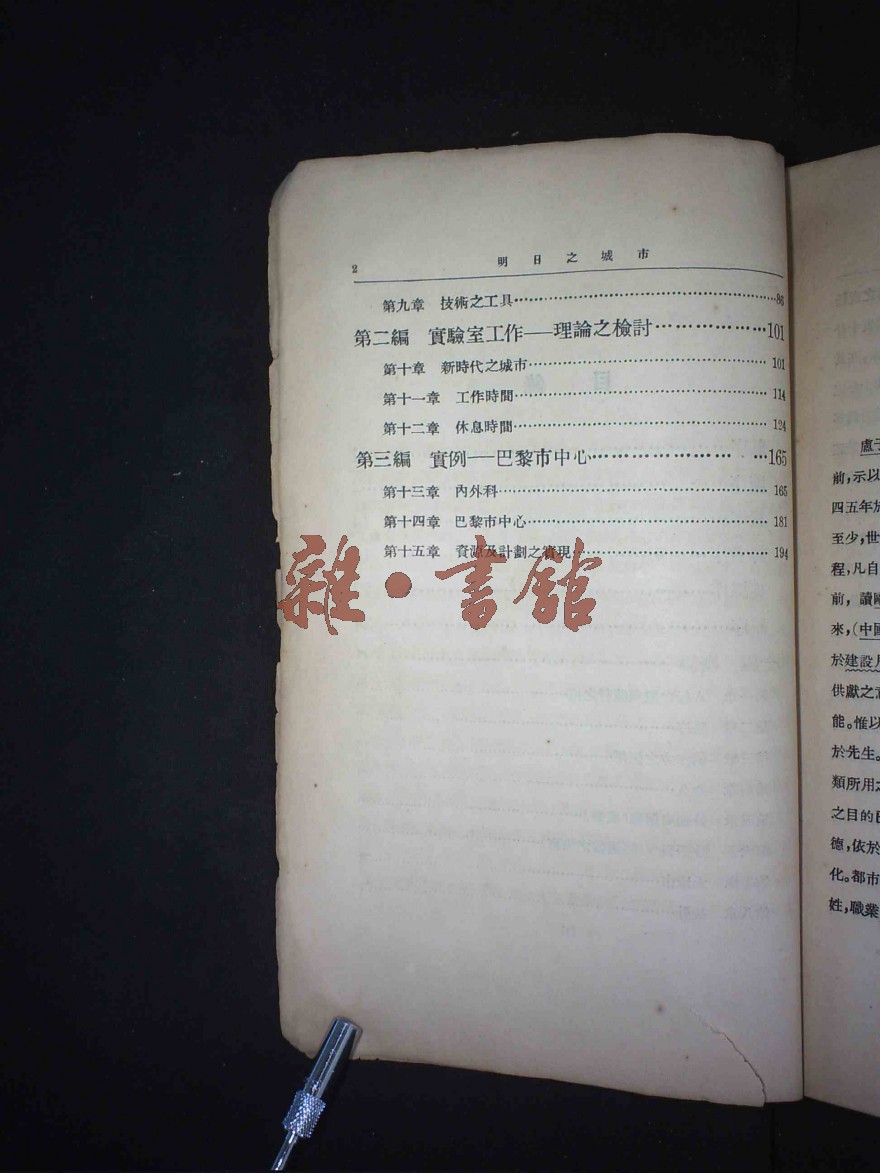 2 明日之城市
第九章 技術之工具……86
第二編 實驗室工作——理論之檢討……101
第十章 新時代之城市……101
第十一章 工作時間……114
第十二章 休息時間……124
第三編 實例——巴黎市中心……165
第十三章 內外科……165
第十四章 巴黎市中心……181
第十五章 資源及計劃之實現……194
雜·書館
前,示以
四五年於
至少,世
程,凡自
前,讀
來,(中國
於建設
供獻之
能。惟以
於先生。
類所用之
之目的
德,依於
化。都市
姓,職業